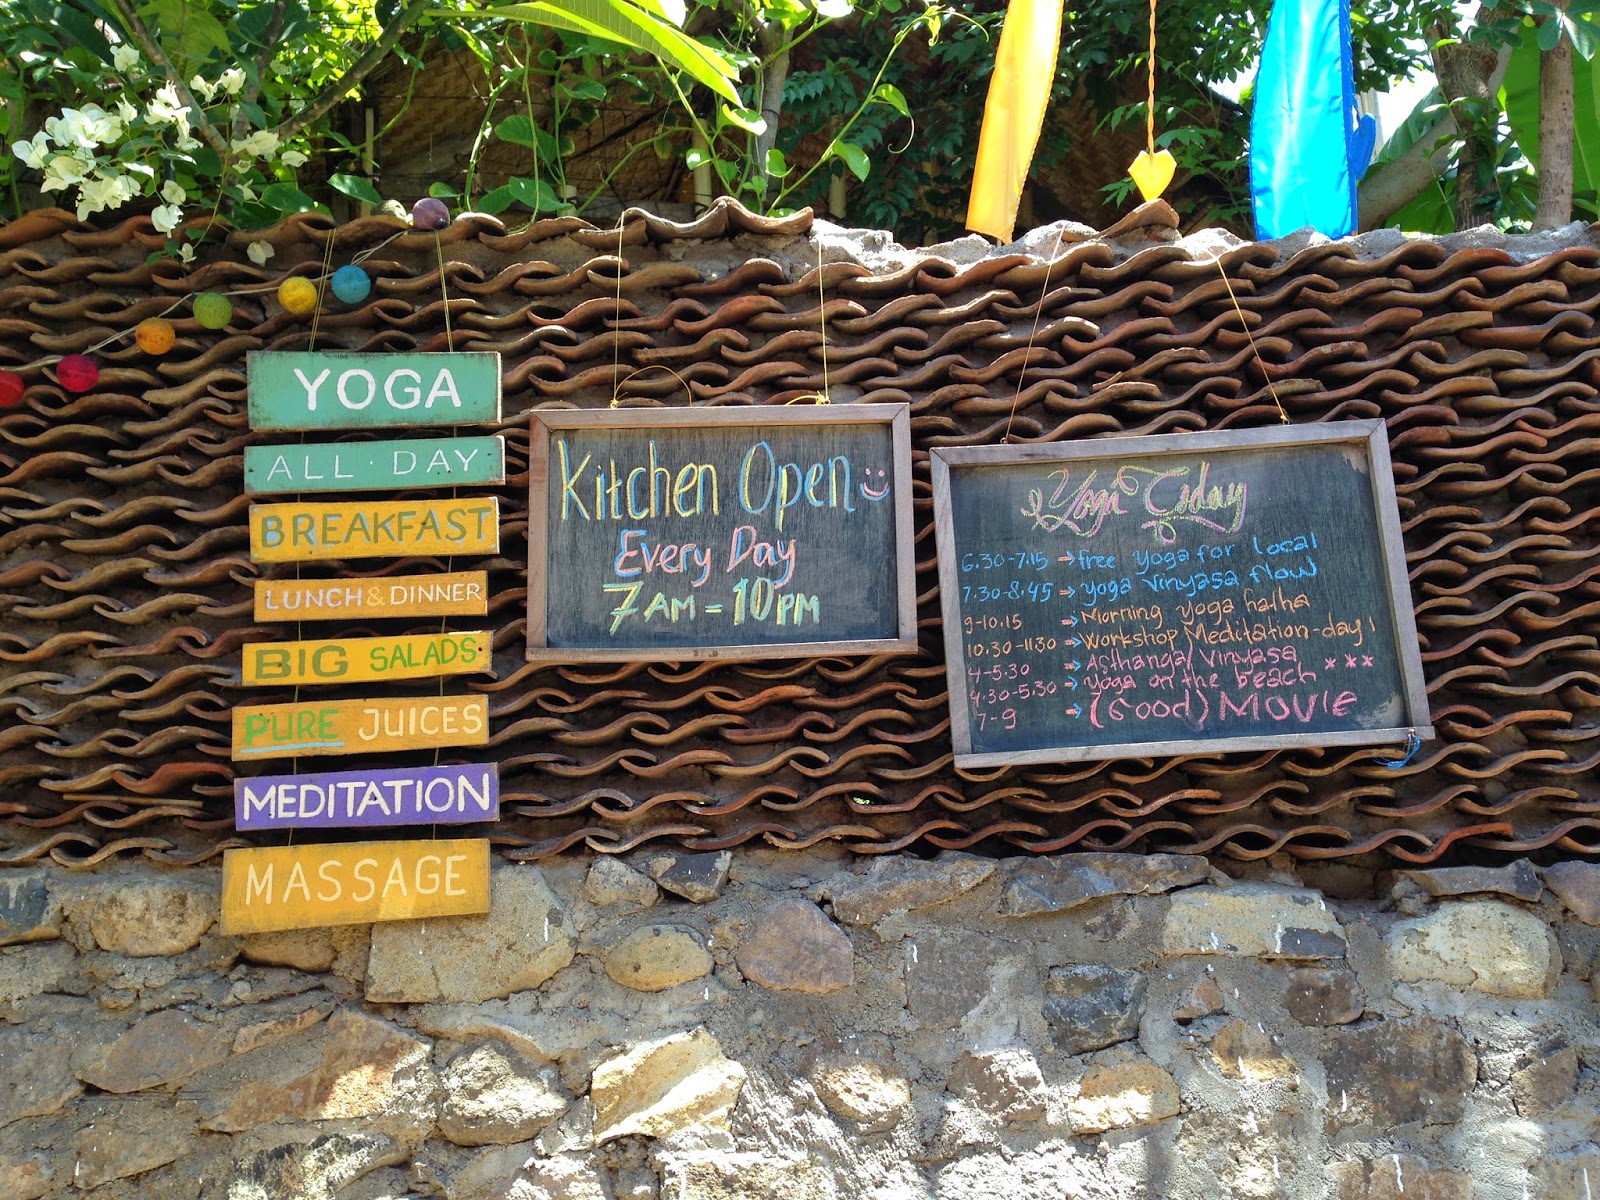 YOGA
ALL · DAY
BREAKFAST
LUNCH & DINNER
BIG SALADS
PURE JUICES
MEDITATION
MASSAGE
Kitchen Open :)
Every Day
7 AM = 10 PM
Yoga Today
6.30-7.15 → free yoga for local
7.30-8.45 → yoga vinyasa flow
9-10.15 → Morning yoga hatha
10.30-11.30 → Workshop Meditation-day 1
4-5.30 → Asthanga/Vinyasa
4.30-5.30 → yoga on the beach ***
7-9 → (Good) MOVIE